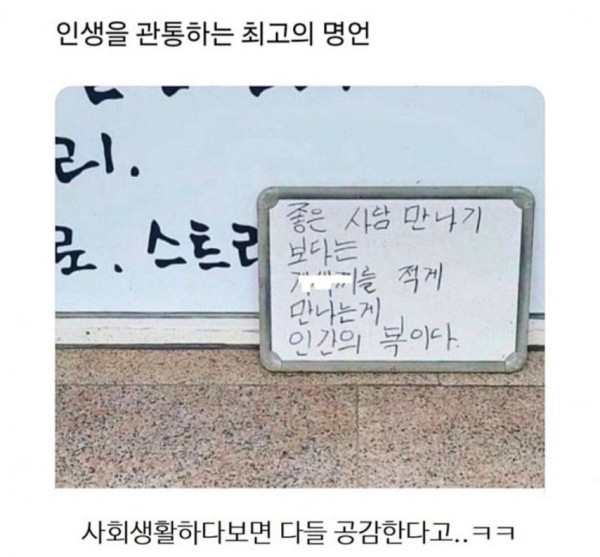 인생을 관통하는 최고의 명언
리.
로. 스트리
좋은 사람 만나기
보다는
적게
만나는게
인간의 복이다.
사회생활하다보면 다들 공감한다고..ㅋㅋ